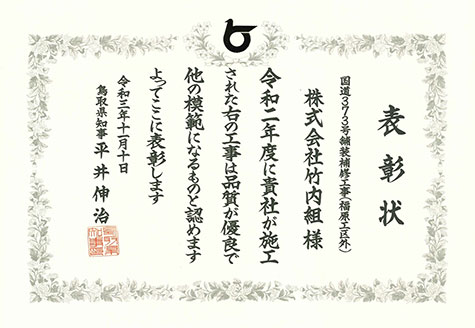 表彰状
国道373号舗装補修工事(福原工区外)
株式会社竹内組 様
令和二年度に貴社が施工
された右の工事は品質が優良で
他の模範になるものと認めます
よってここに表彰します
令和三年十一月十日
鳥取県知事 平井伸治